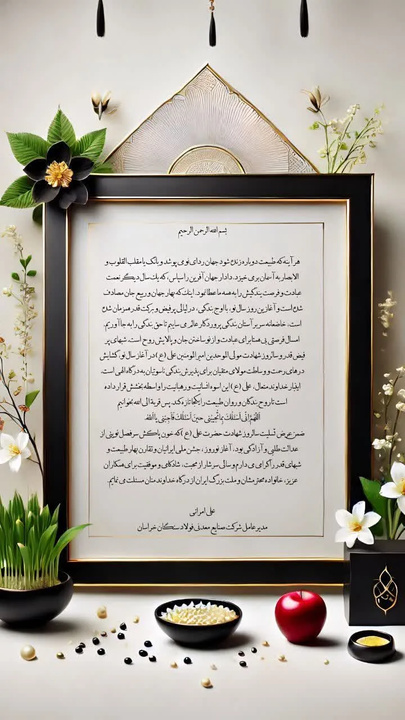 بسم الله الرحمن الرحیم
هر آینه که طبیعت دوباره زنده شود جهان ردای نوی پوشد و بانگ یا مقلب القلوب و
الابصار به آسمان بری خیزد. دادار جهان آفرین را سپاس که یک سال دیگر نعمت
عبادت و فرصت بندگیش را به همه ما عطا نمود. اینک که بهار جهان و ربیع جان مصادف
شده است و آغازین روز سال نو، با اوج بندگی، در لیالی پر فیض و برکت قدر همزمان شده
است، خاضعانه سر بر آستان بندگی پروردگار عالم می ساییم تا حق بندگی را به جا آوریم.
امسال فرصتی بی همتا برای عبادت و از نو ساختن جان و پالایش روح است. شبهای پر
فیض قدر و سالروز شهادت مولی الموحدین امیرالمومنین علی (ع) در آغاز سال نو گشایش
درهای رحمت و وساطت مولای متقیان برای پذیرش بندگی ناسوتیان به درگاه الهی است.
ایثار خداوند متعال، علی (ع) این اسوه انسانیت و رهبانیت را واسطه بخشش قرار داده
است تا روح بندگان و روان طبیعت را یکجا تازه کند. پس قربة الی الله بخوانیم
اللهم إنی أسئلک یا مجیبی حین أسئلک فأجبنی یا الله.
ضمن عرض تسلیت سالروز شهادت حضرت علی (ع) که خون پاکش سر فصل نوینی از
عدالت طلبی و آزادگی بود، آغاز نوروز، جشن ملی ایرانیان و تقارن بهار طبیعت و
شبهای قدر را گرامی می دارم و سالی سرشار از محبت، شادکامی و موفقیت برای همکاران
عزیز، خانواده محترمشان و ملت بزرگ ایران از درگاه خداوند منان مسئلت می نمایم.
علی امرانی
مدیرعامل شرکت صنایع معدنی فولاد سنگان خراسان